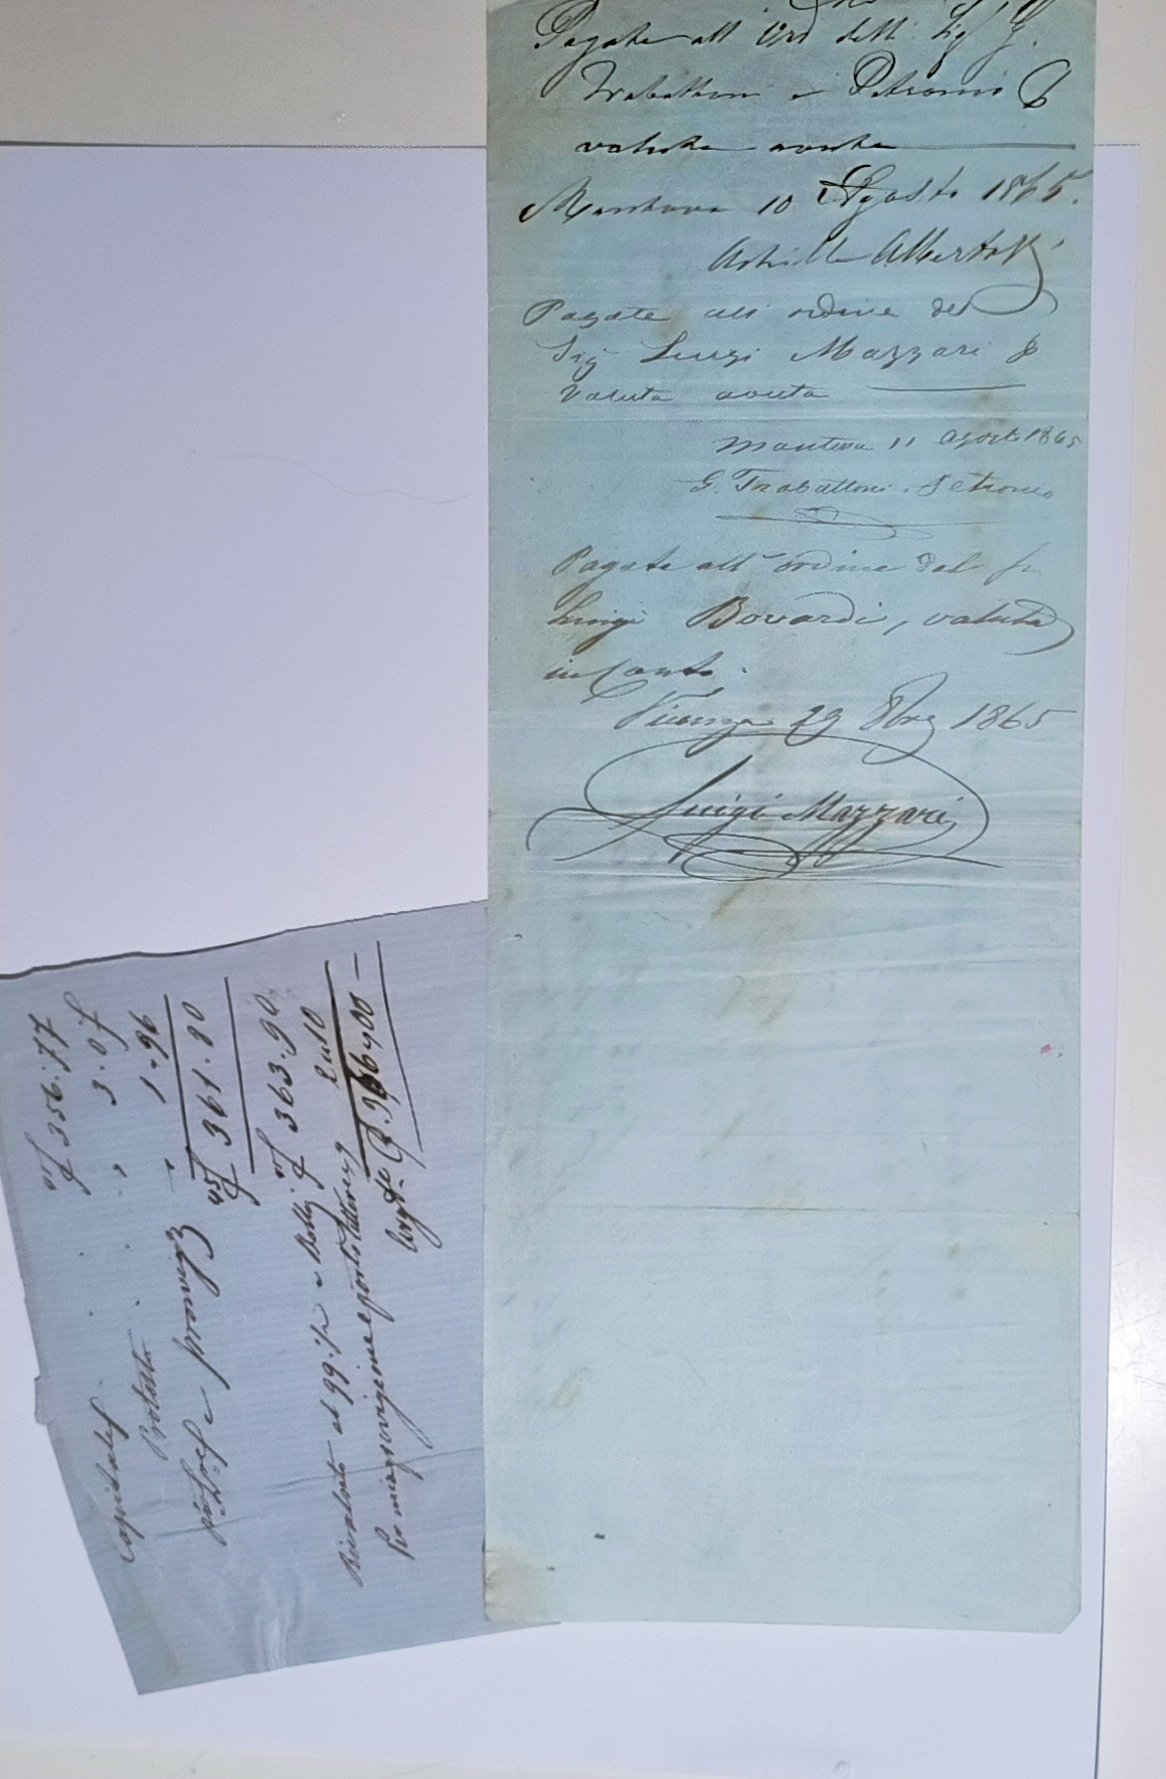 Pagate all' Ord delli Sig G.
Trabattoni e Petronio
valuta avuta
Mantova 10 Agosto 1865.
Achille Albertolli
Pagate all' ordine del
Sig Luigi Mazzari
Valuta avuta
Mantova 11 Agosto 1865
G. Traballoni Petronio
Pagate all' ordine del
Luigi Bovardi, valuta
in Conto.
Vicenza 29 8bre 1865
Luigi Mazzari
Capitale 356.77
Protesto " 3.07
e provvig " 1.96
361.80
Rivalsato al 99. e Bolli 363.90
Per mezza provvigione e porto lettere 2.10